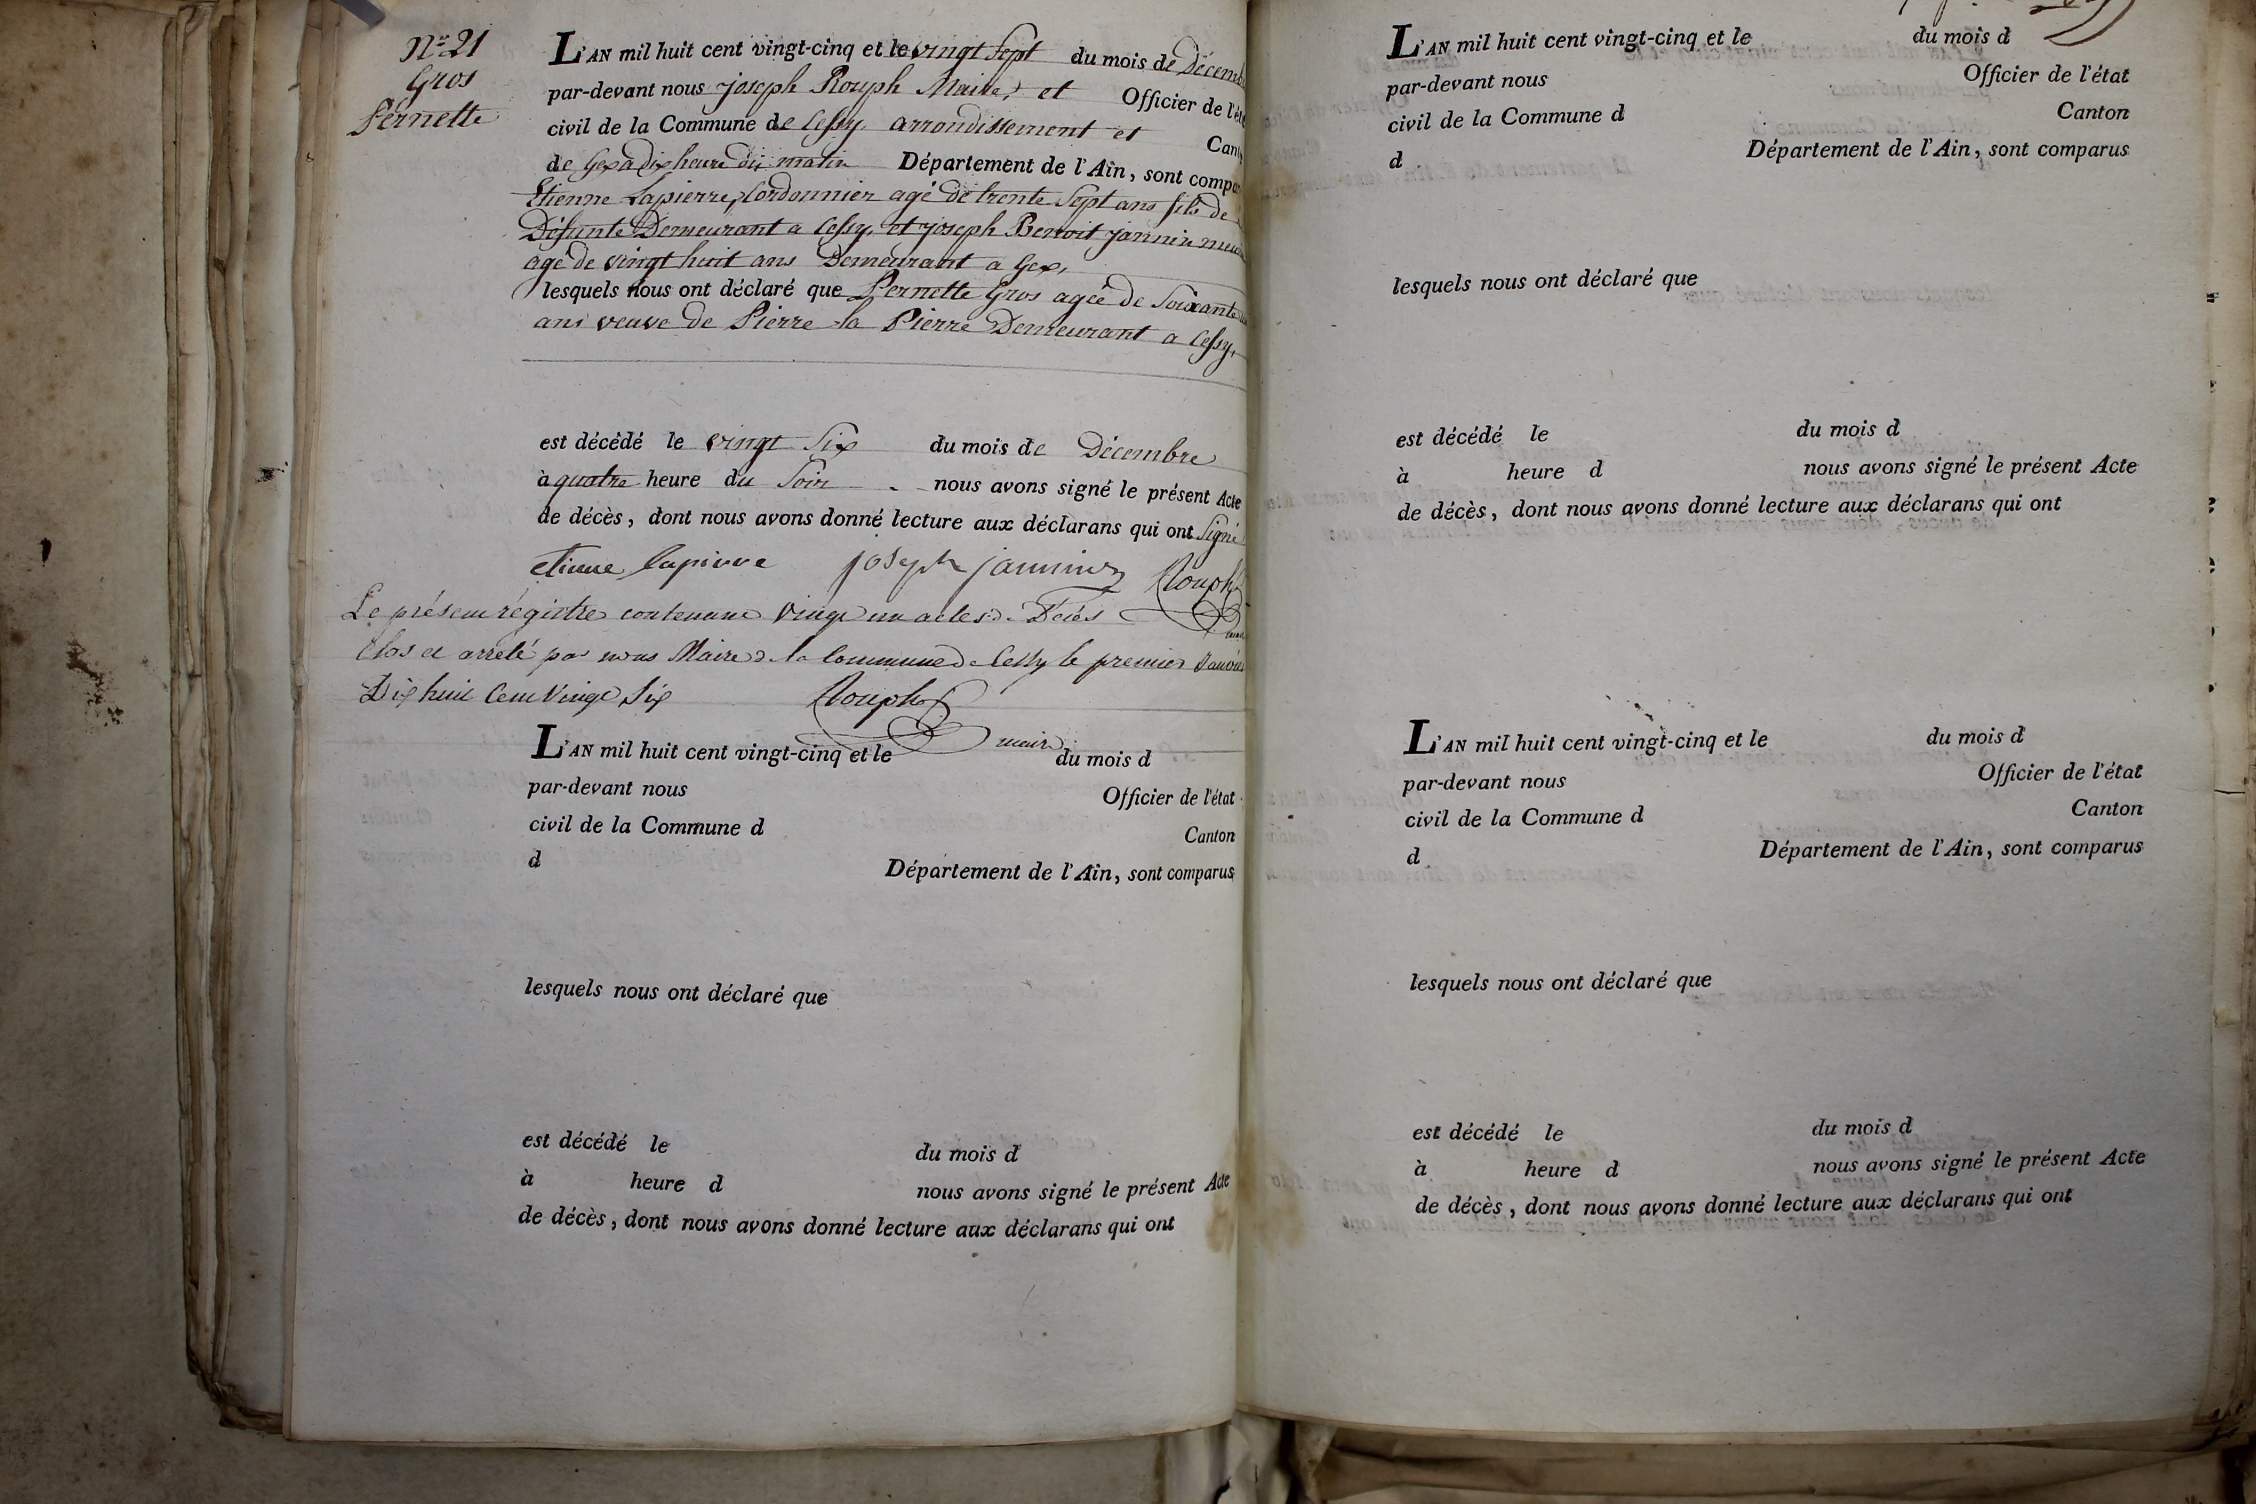 N.º 21
Gros
Pernette
L'AN mil huit cent vingt-cinq et le vingt Sept du mois de Décemb
par-devant nous joseph Rouph Maire, et Officier de l'ét
civil de la Commune de Cessy, arrondissement et Cant
de Gex à dix heure du matin Département de l'Ain, sont compar
Etienne Lapierre, Cordonnier agé de trente Sept ans fils de
Défunte Demeurant a Cessy, et joseph Benoit jannin
agé de vingt huit ans Demeurant a Gex,
lesquels nous ont déclaré que Pernette Gros agée de Soixante
ans veuve de Pierre la Pierre Demeurant a Cessy,
est décédé le vingt Six du mois de Décembre
à quatre heure du Soir nous avons signé le présent Acte
de décès, dont nous avons donné lecture aux déclarans qui ont Signé
etienne lapierre joseph jannin Rouph
Le présent régistre contenant vingt un actes de Décés
Clos et arrêté par nous Maire de la Commune de Cessy le premier Janvier
Dix huit Cent Vingt Six Rouph
maire
L'AN mil huit cent vingt-cinq et le du mois d
par-devant nous Officier de l'état
civil de la Commune d Canton
d Département de l'Ain, sont comparus
lesquels nous ont déclaré que
est décédé le du mois d
à heure d nous avons signé le présent Acte
de décès, dont nous avons donné lecture aux déclarans qui ont
L'AN mil huit cent vingt-cinq et le du mois d
par-devant nous Officier de l'état
civil de la Commune d Canton
d Département de l'Ain, sont comparus
lesquels nous ont déclaré que
est décédé le du mois d
à heure d nous avons signé le présent Acte
de décès, dont nous avons donné lecture aux déclarans qui ont
L'AN mil huit cent vingt-cinq et le du mois d
par-devant nous Officier de l'état
civil de la Commune d Canton
d Département de l'Ain, sont comparus
lesquels nous ont déclaré que
est décédé le du mois d
à heure d nous avons signé le présent Acte
de décès, dont nous avons donné lecture aux déclarans qui ont